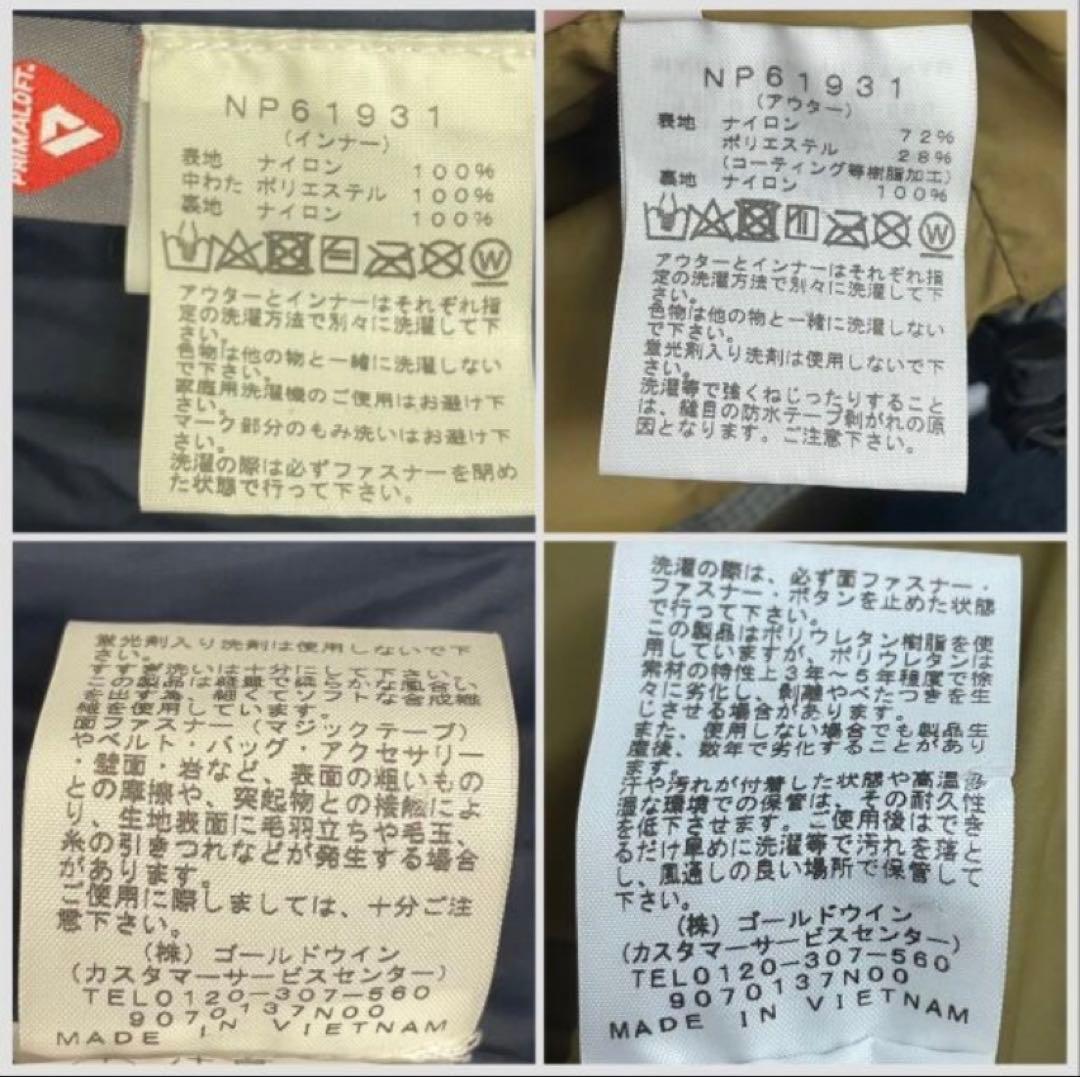 PRIMALOFT®
NP61931
(インナー)
表地 ナイロン 100%
中わた ポリエステル 100%
裏地 ナイロン 100%
W
アウターとインナーはそれぞれ指
定の洗濯方法で別々に洗濯して下
さい。
色物は他の物と一緒に洗濯しない
で下さい。
家庭用洗濯機のご使用はお避け下
さい。
マーク部分のもみ洗いはお避け下
さい。
洗濯の際は必ずファスナーを閉め
た状態で行って下さい。
NP61931
(アウター)
表地 ナイロン 72%
ポリエステル 28%
(コーティング等樹脂加工)
裏地 ナイロン 100%
W
アウターとインナーはそれぞれ指
定の洗濯方法で別々に洗濯して下
さい。
色物は他の物と一緒に洗濯しない
で下さい。
蛍光剤入り洗剤は使用しないで下
さい。
洗濯等で強くねじったりすること
は、縫目の防水テープ剥がれの原
因となります。ご注意下さい。
蛍光剤入り洗剤は使用しないで下
さい。
すすぎ洗いは十分にして下さい。
この製品は軽量で柔らかな風合い
を出す為、細くてソフトな合成繊
維を使用しています。
面ファスナー(マジックテープ)
やベルト・バッグ・アクセサリー
・壁面・岩など、表面の粗いもの
との摩擦や、突起物との接触によ
り、生地表面に毛羽立ちや毛玉、
糸の引きつれなどが発生する場合
があります。
ご使用に際しましては、十分ご注
意下さい。
(株)ゴールドウイン
(カスタマーサービスセンター)
TEL0120-307-560
9070137N00
MADE IN VIETNAM
洗濯の際は、必ず面ファスナー・
ファスナー・ボタンを止めた状態
で行って下さい。
この製品はポリウレタン樹脂を使
用していますが、ポリウレタンは
素材の特性上3年〜5年程度で徐
々に劣化し、剥離やべたつきを生
じさせる場合があります。
また、使用しない場合でも製品生
産後、数年で劣化することがあり
ます。
汗や汚れが付着した状態や高温多
湿な環境での保管は、その耐久性
を低下させます。ご使用後はでき
るだけ早めに洗濯等で汚れを落と
し、風通しの良い場所で保管して
下さい。
(株)ゴールドウイン
(カスタマーサービスセンター)
TEL0120-307-560
9070137N00
MADE IN VIETNAM